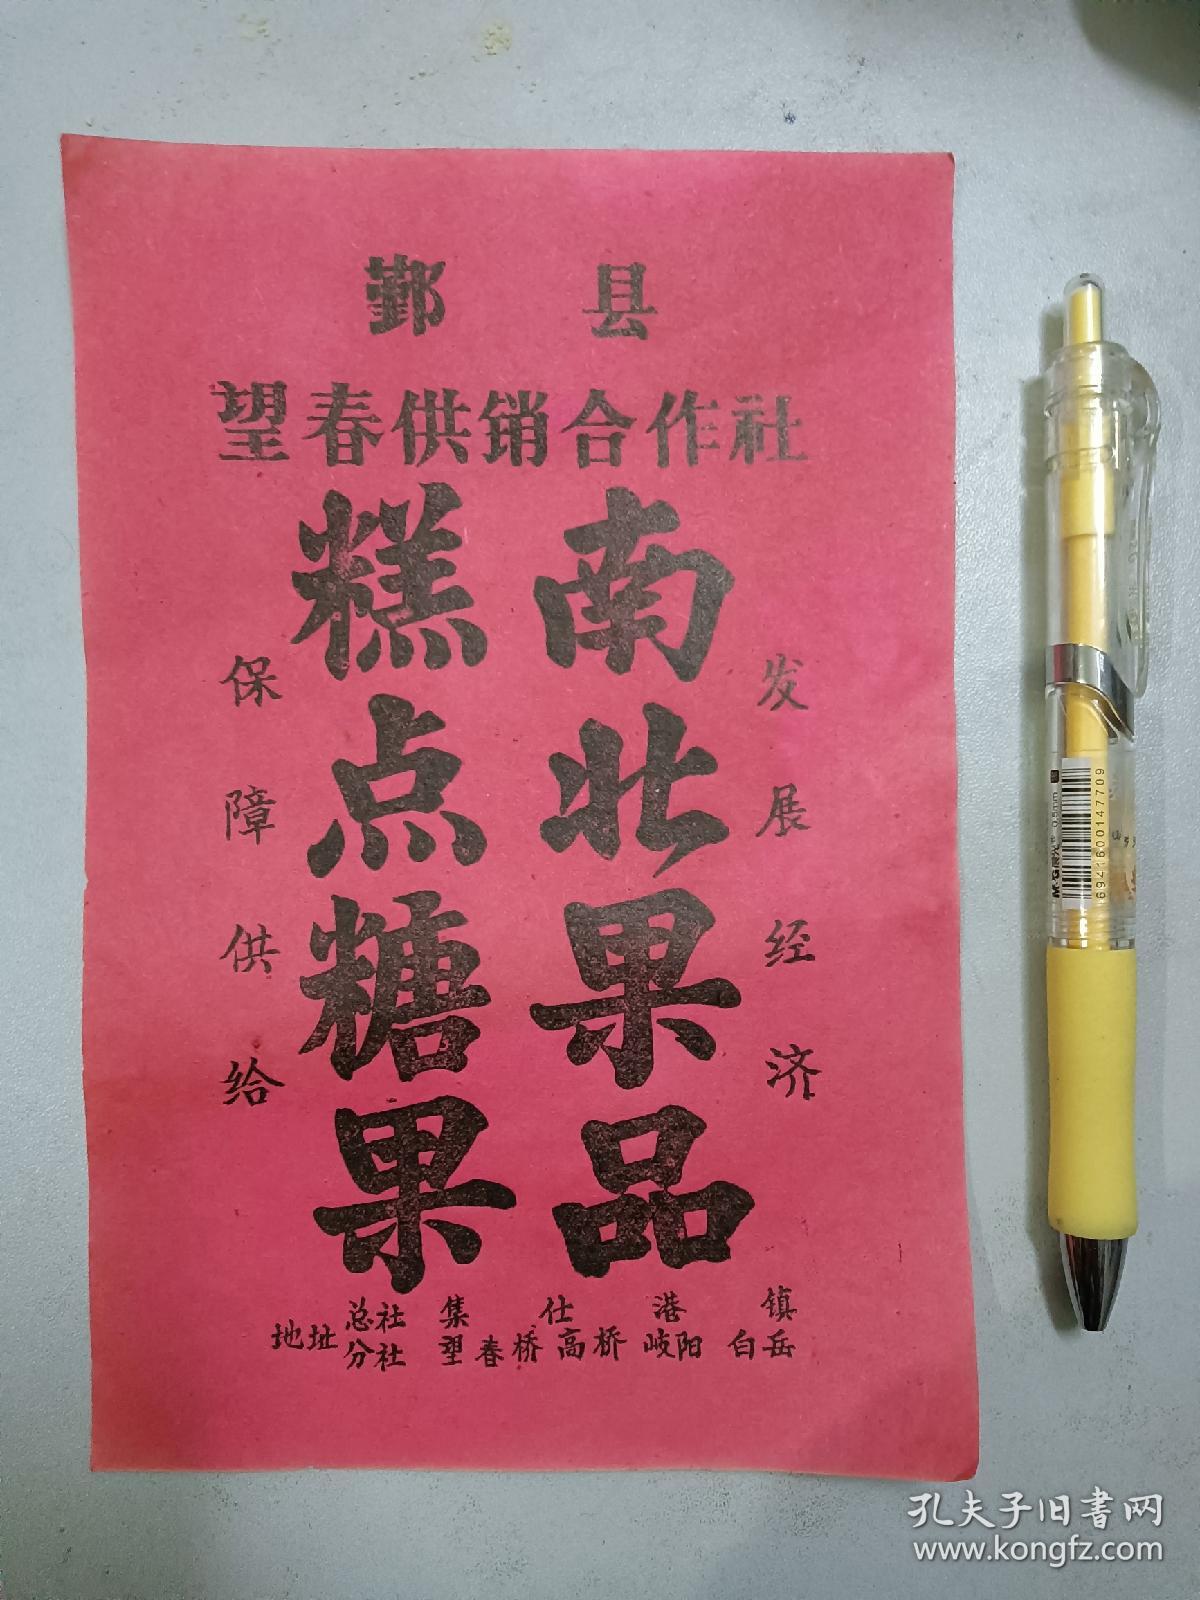 鄞县
望春供销合作社
发展经济
南北果品
糕点糖果
保障供给
地址
总社 集仕港镇
分社 望春桥 高桥 岐阳 白岳
M&G晨光 0.5mm
6941600147709
孔夫子旧书网
www.kongfz.com